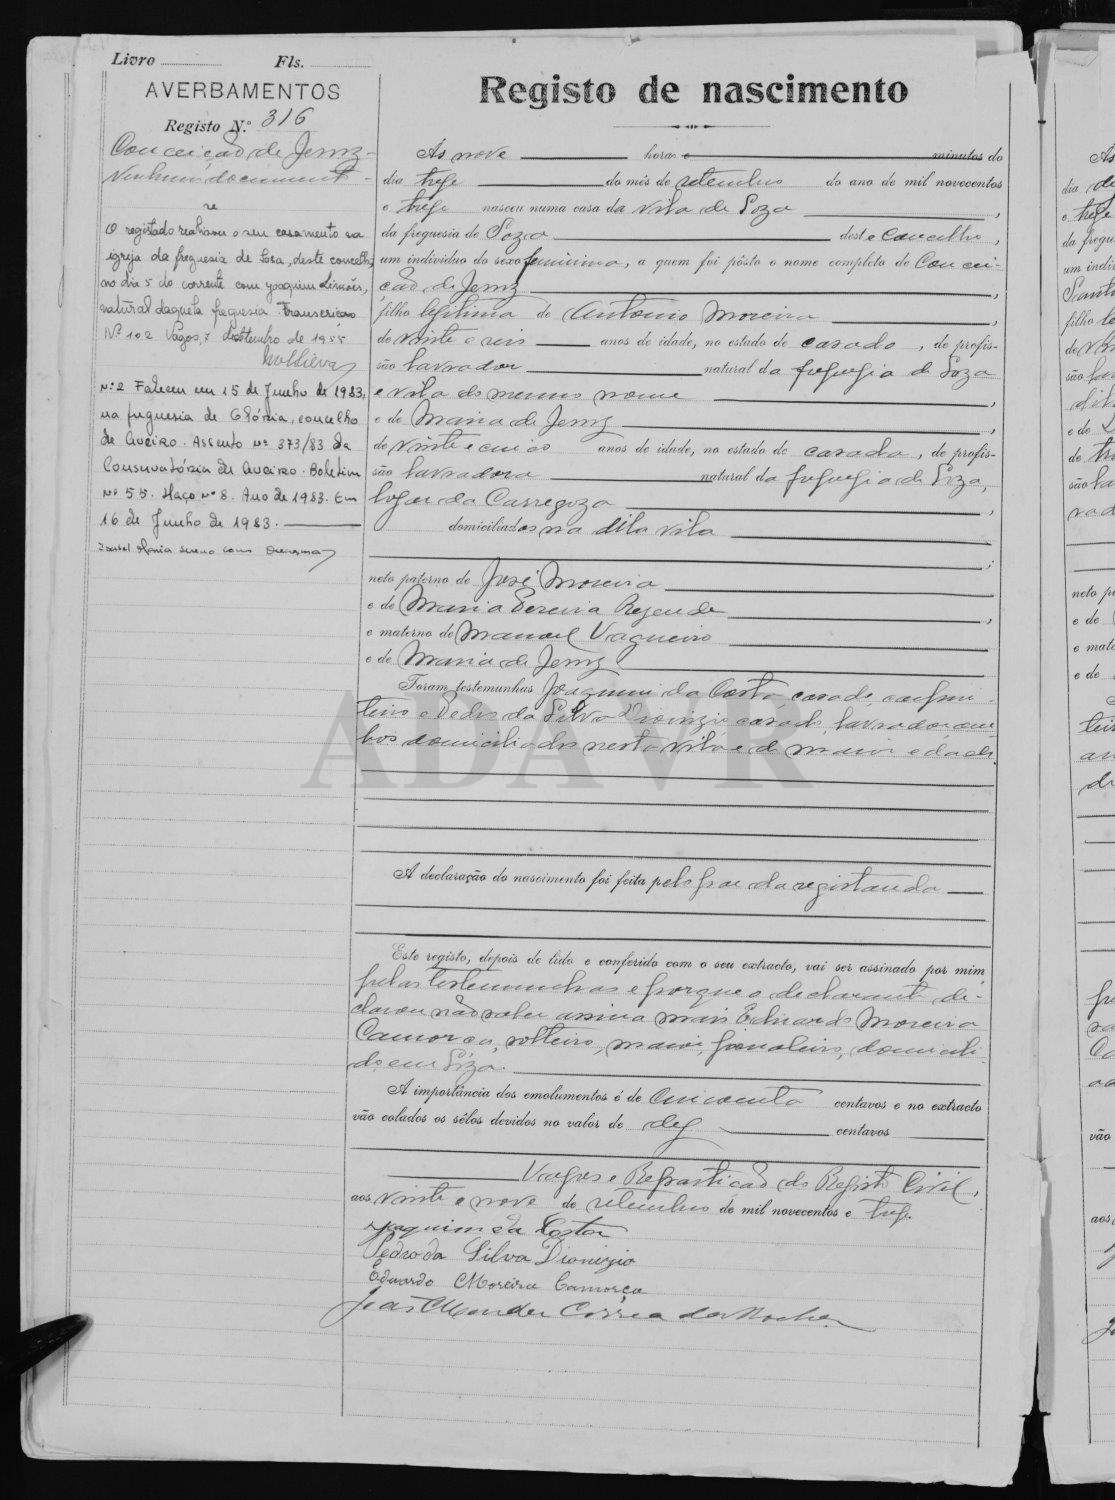 Livro Fls.
AVERBAMENTOS
Registo N.º 316
Conceição de Jesus
Nenhum documento
O registado realizou o seu casamento na
igreja da freguesia de Sosa, deste concelho,
no dia 5 do corrente com Joaquim Simões,
natural daquela freguesia. Transcrição
Nº 102 Vagos, 7 Setembro de 1955
Nº 2 Faleceu em 15 de Junho de 1983,
na freguesia de Glória, concelho
de Aveiro. Assento nº 373/83 da
Conservatória de Aveiro. Boletim
Nº 55. Maço nº 8. Ano de 1983. Em
16 de Junho de 1983.
Isabel Maria
Registo de nascimento
Ás nove horas e minutos do
dia treze do mês de setembro do ano de mil novecentos
e treze nasceu numa casa da vila de Soza,
da freguesia de Soza deste concelho,
um individuo do sexo feminino, a quem foi pôsto o nome completo de Concei-
ção de Jesus,
filho legitima de Antonio Moreira,
de vinte e seis anos de idade, no estado de casado, de profis-
são lavrador natural da freguezia de Soza
e vila do mesmo nome,
e de Maria de Jesus,
de vinte e cinco anos de idade, no estado de casada, de profis-
são lavradora natural da freguezia de Soza,
logar da Carregoza,
domiciliados na dita vila
;
neto paterno de José Moreira
e de Maria Pereira Rezende,
e materno de Manoel Vagueiro
e de Maria de Jesus
Foram testemunhas Joaquim da Costa casado, carpin-
teiro e Pedro da Silva Dionizio casado, lavrador, am-
bos domiciliados nesta vila e de maior edade.
A declaração do nascimento foi feita pelo pae da registanda
Este registo, depois de lido e conferido com o seu extracto, vai ser assinado por mim
pelas testemunhas e porque o declarante de-
clarou não saber assina mais Eduardo Moreira
Camorça, solteiro, maior, jornaleiro, domicili-
do em Soza.
A importância dos emolumentos é de cincoenta centavos e no extracto
vão colados os sêlos devidos no valor de dez centavos
Vagos e Repartição do Registo Civil,
aos vinte e nove de setembro de mil novecentos e treze.
Joaquim da Costa
Pedro da Silva Dionizio
Eduardo Moreira Camorça
João Mendes Correa da Rocha
ADAVR